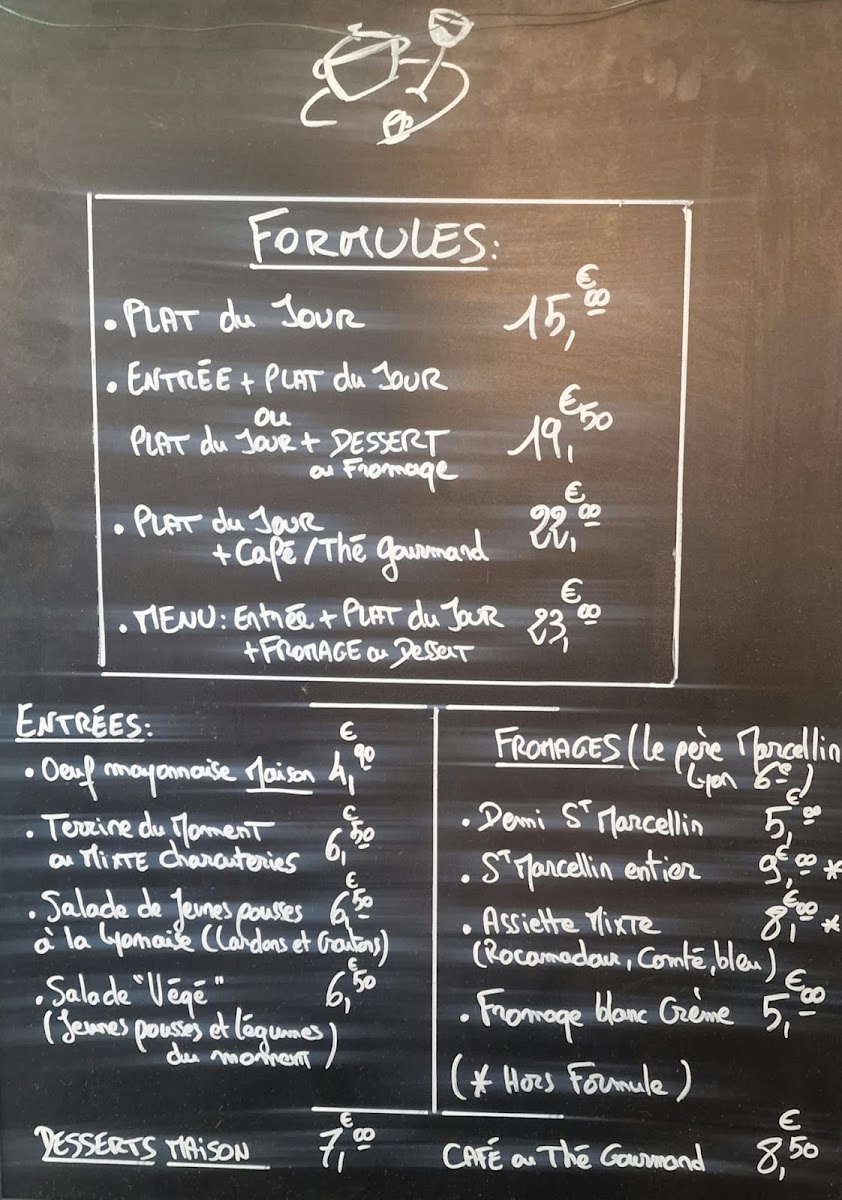 FORMULES:
• PLAT du JOUR 15,€00
• ENTRÉE + PLAT du JOUR
ou
PLAT du JOUR + DESSERT 19,€50
ou Fromage
• PLAT du JOUR 22,€00
+ Café / Thé gourmand
• MENU: Entrée + PLAT du JOUR 23,€00
+ FROMAGE ou Dessert
ENTRÉES:
• Oeuf mayonnaise Maison 4,€90
• Terrine du Moment 6,€50
ou MIXTE charcuteries
• Salade de Jeunes pousses 6,€50
à la Lyonnaise (Lardons et Croutons)
• Salade "Végé" 6,€50
(Jeunes pousses et légumes
du moment)
FROMAGES (Le père Marcellin
Lyon 6e)
• Demi ST Marcellin 5,€00
• ST Marcellin entier 9,€00 *
• Assiette MIXTE 8,€00 *
(Rocamadour, Comté, bleu)
• Fromage blanc Crème 5,€00
(* Hors Formule)
DESSERTS MAISON 7,€00
CAFÉ ou Thé Gourmand 8,€50